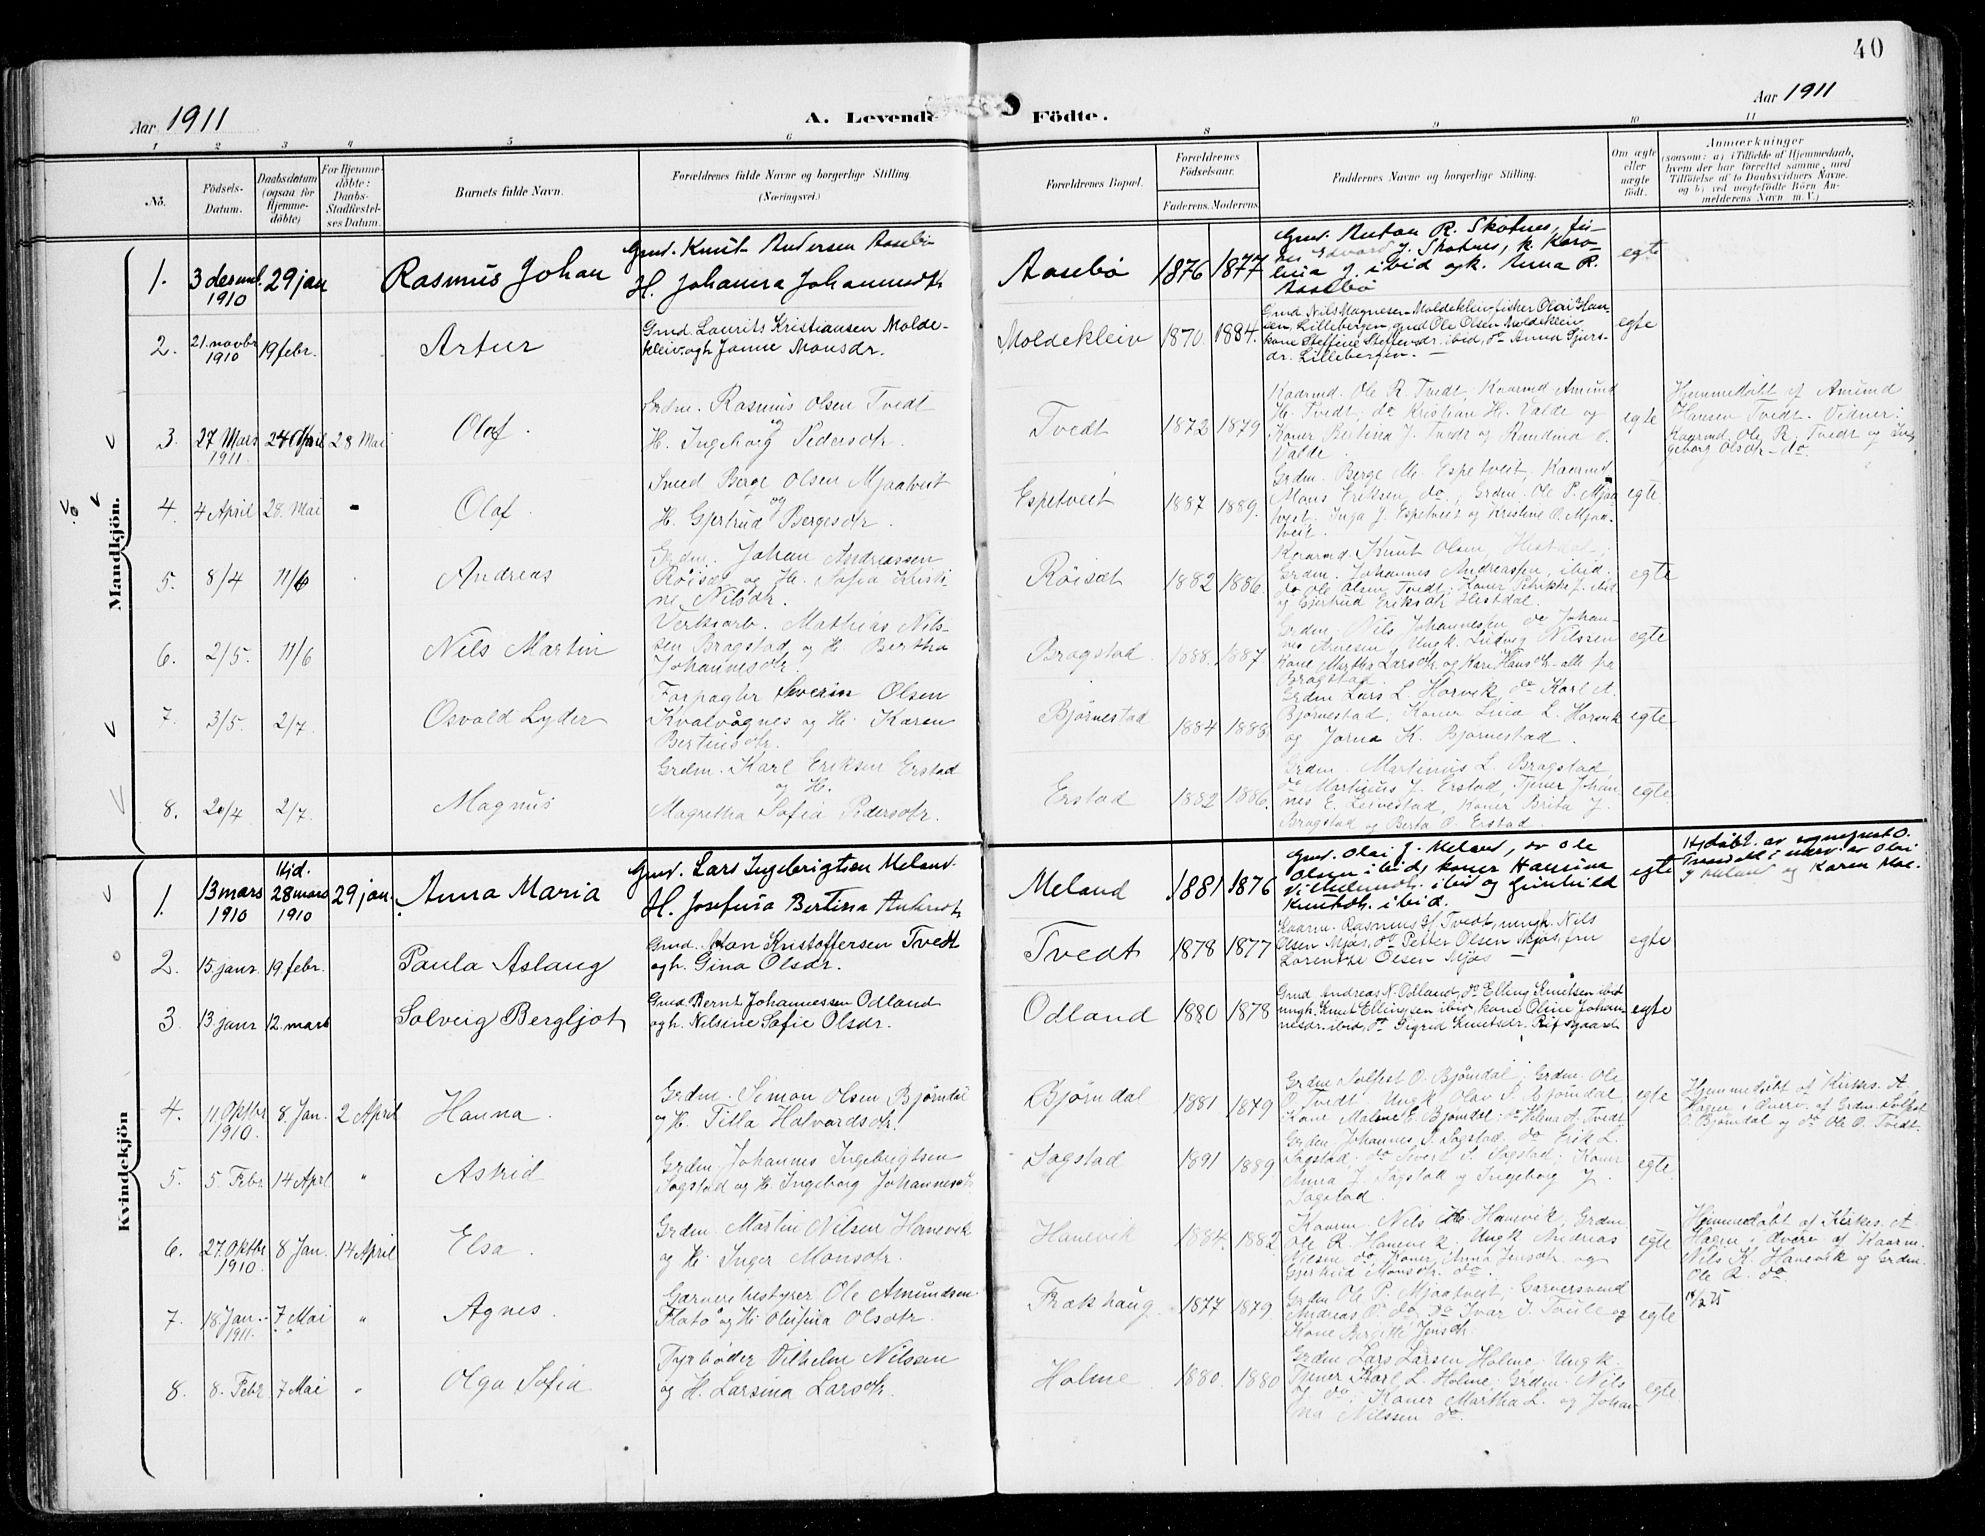 40
Aar 1911
A. Levende Födte.
Aar 1911
1 2 3 4 5 6 8 9 10 11
No.
Födsels-Datum.
Daabsdatum (ogsaa for Hjemme-döbte)
For Hjemme-döbte: Daabs-Stadfæstel-ses Datum.
Barnets fulde Navn.
Forældrenes fulde Navne og borgerlige Stilling. (Næringsvei.)
Forældrenes Bopæl.
Forældrenes Födselsaar.
Faderens. Moderens.
Faddernes Navne og borgerlige Stilling.
Om ægte eller uægte födt.
Anmærkninger
(saasom: a) i Tilfælde af Hjemmedaab,
hvem der har forrettet samme, med
Tilföielse af to Daabsvidners Navne,
og b) ved uegtefödte Börn An-
melderens Navn m. V.)
Mandkjön.
1. 3 desmb. 1910 29 jan Rasmus Johan
Gmd. Knut Andersen Aasebö
H. Johanna Johannesdtr
Aasebö 1876 1877
Gmd. Anton R. Skotnes, fis-
ker Edvard J. Skotnes, k. Karo-
lina J. ibid og k. Anna R.
Aasebö
egte
2. 21. novbr 1910 19 febr. Artur
Gmd. Laurits Kristiansen Molde-
kleiv og h. Janne Monsdr.
Moldekleiv 1870 1884.
Gmd Nils Magnesen Moldekleiv, fisker Olai Han-
sen Lillebergen, gmd Ole Olsen Moldekleiv
kone Steffine Steffensdr. ibid, do Anna Gjers-
dr. Lillebergen.
egte
3. 27 Mars 1911. 24 April 28 Mai Olaf.
Grdm. Rasmus Olsen Tvedt
og
H. Ingeborg Pedersdtr.
Tvedt 1872 1879
Kaarmd. Ole R. Tvedt, Kaarmd Amund
H. Tvedt, do Kristian H. Valde og
Koner Bertina J. Tvedt og Randina O.
Valde.
egte
Hjemmedöbt af Amund
Hansen Tvedt. Vidner:
Kaarmd. Ole R. Tvedt og In-
geborg Olsdtr. do.
4. 4 April 28. Mai - Olaf.
Smed Berge Olsen Mjaatveit
og
H. Gjertrud Bergesdtr.
Espetveit 1887 1889.
Grdm. Berge M. Espetveit, Kaarmd
Mons Eriksen, do, Grdm. Ole P. Mjaa-
tveit. Inga J. Espetveit og Kristine O. Mjaa-
tveit.
egte
5. 8/4 11/6 Andreas
Grdm. Johan Andreassen
Röisæt og H. Sofia Kristi-
ne Nilsdr.
Röisæt 1882 1886.
Kaarmd. Knut Olsen, Hestdal;
Grdm. Johannes Andreassen, ibid.
do Ole Olsen Tvedt; Koner J. ibid
og Gjertrud Eriksdtr Hestdal.
egte
6. 2/5. 11/6 Nils Martin
Verksarb. Mathias Nils-
sen Bragstad og H. Bertha
Johannesdtr.
Bragstad. 1888. 1887
Grdm. Nils Johannesen do Johan-
nes Ungk. Ludvig Nilssen
Kone Martha Larsdtr og Kari Hansdtr - alle fra
Bragstad.
egte
7. 3/5. 2/7. Osvald Lyder
Forpagter Severin Olsen
Kvalvågnes og H. Karen
Bertinsdtr.
Björnestad 1884 1888.
Grdm Lars L. Horvik, do Karl A.
Björnestad. Koner Lina L. Horvik
og Jorna K. Björnestad.
egte
8. 20/4 2/7. Magnus
Grdm. Karl Eriksen Erstad
og H.
Magretha Sofia Pedersdtr.
Erstad 1882 1886.
Grdm. Martinus L. Bragstad,
do Martinus J. Erstad, Tjener Johan-
nes E. Leivestad, Koner Brita J.
Bragstad og Berta O. Erstad.
egte
Kvindekjön
1. 13 mars 1910 Hjd. 28 mars 1910 29 jan. Anna Maria
Gmd. Lars Ingebrigtsen Meland.
H. Josefina Bertina
Meland 1881 1876
Gmd. Olai J. Meland, do Ole
Olsen ibid, koner Hansina
Vilhelmsdtr. ibid og Gunhild
Knutsdtr. ibid.
egte
Hjdöbt. av sogneprest O.
i nærv. av Olai
J Meland og Karen Mel.
2. 15. janr. 19. febr. Paula Aslaug
Gmd. Kristoffersen Tvedt
og h. Gina Olsdr.
Tvedt 1878 1877
Kaarm. Rasmus H. Tvedt, ungk. Nils
Olsen Mjös, do Petter Olsen Mjös, frn
Lorentze Olsen Mjös
egte
3. 13. janr 12. mars Solveig Bergljot
Gmd. Bernt Johannessen Odland
og h. Nilsine Sofie Olsdr.
Odland 1880 1878
Gmd Andreas N. Odland, do Elling Knutsen ibid
ungk. Knut Ellingsen ibid, kone Oline Johan-
nesdr. ibid, do Sigrid Knutsdr. Röfsgaard
egte
4. 11. Oktbr 1910. 8 Jan. 2 April Hanna.
Grdm. Simon Olsen Björndal
og H. Tilla Halvardsdtr.
Björndal 1881 1879
Grdm Solfest O. Björndal; Grdm. Ole
O. Tvedt. Ungk Olav S. Björndal,
Kone Malene E. Björndal. do Helena A. Tvedt
egte
Hjemmedöbt af Kirkes. A
Hagen i Overv. af Grdm. Solfest
O. Björndal og do Ole O. Tvedt.
5. 5 Febr 14 Apr. " Astrid
Grdm Johannes Ingebrigtsen
Sagstad og H. Ingeborg Johannesdtr
Sagstad 1891 1889
Grdm. Johannes I. Sagstad, do Erik L.
Sagstad, do Sivert I. Sagstad; Koner
Anna J. Sagstad og Ingeborg J.
Sagstad.
egte
6. 27. Oktbr 1910 8 Jan. 14 April Elsa.
Grdm. Martin Nilsen Hanevik
og H. Inger Monsdtr.
Hanevik 1884. 1882
Kaarm. Nils Hanevik, Grdm
Ole R. Hanevik. Ungk Andreas
Nilsen do, Koner Anna Jensdtr og
Gjertrud Monsdtr. do.
egte
Hjemmedöbt af Kirkes. A
Hagen i Overv. af Kaarm.
Nils K. Hanevik og Grdm.
Ole R. do.
7. 18. Jan. 1911. 7 Mai " Agnes.
Garveribestyrer Ole Amundsen
Flatö og H. Olufina Olsdtr.
Frækhaug. 1877 1879
Grdm Ole P. Mjaatveit. Garversvend
Andreas O. do, do Ivar J. og
Kone Birgitte Jensdtr.
egte
8. 8. Febr 7 Mai " Olga Sofia
Fyrböder Vilhelm Nilssen
og H. Larsina Larsdtr.
Holme 1880. 1880
Grdm Lars Larsen Holme. Ungk.
Tjener Karl L. Holme. Grdm. Nils
og do; Koner Martha L. og Johan-
na Nilssen do.
egte